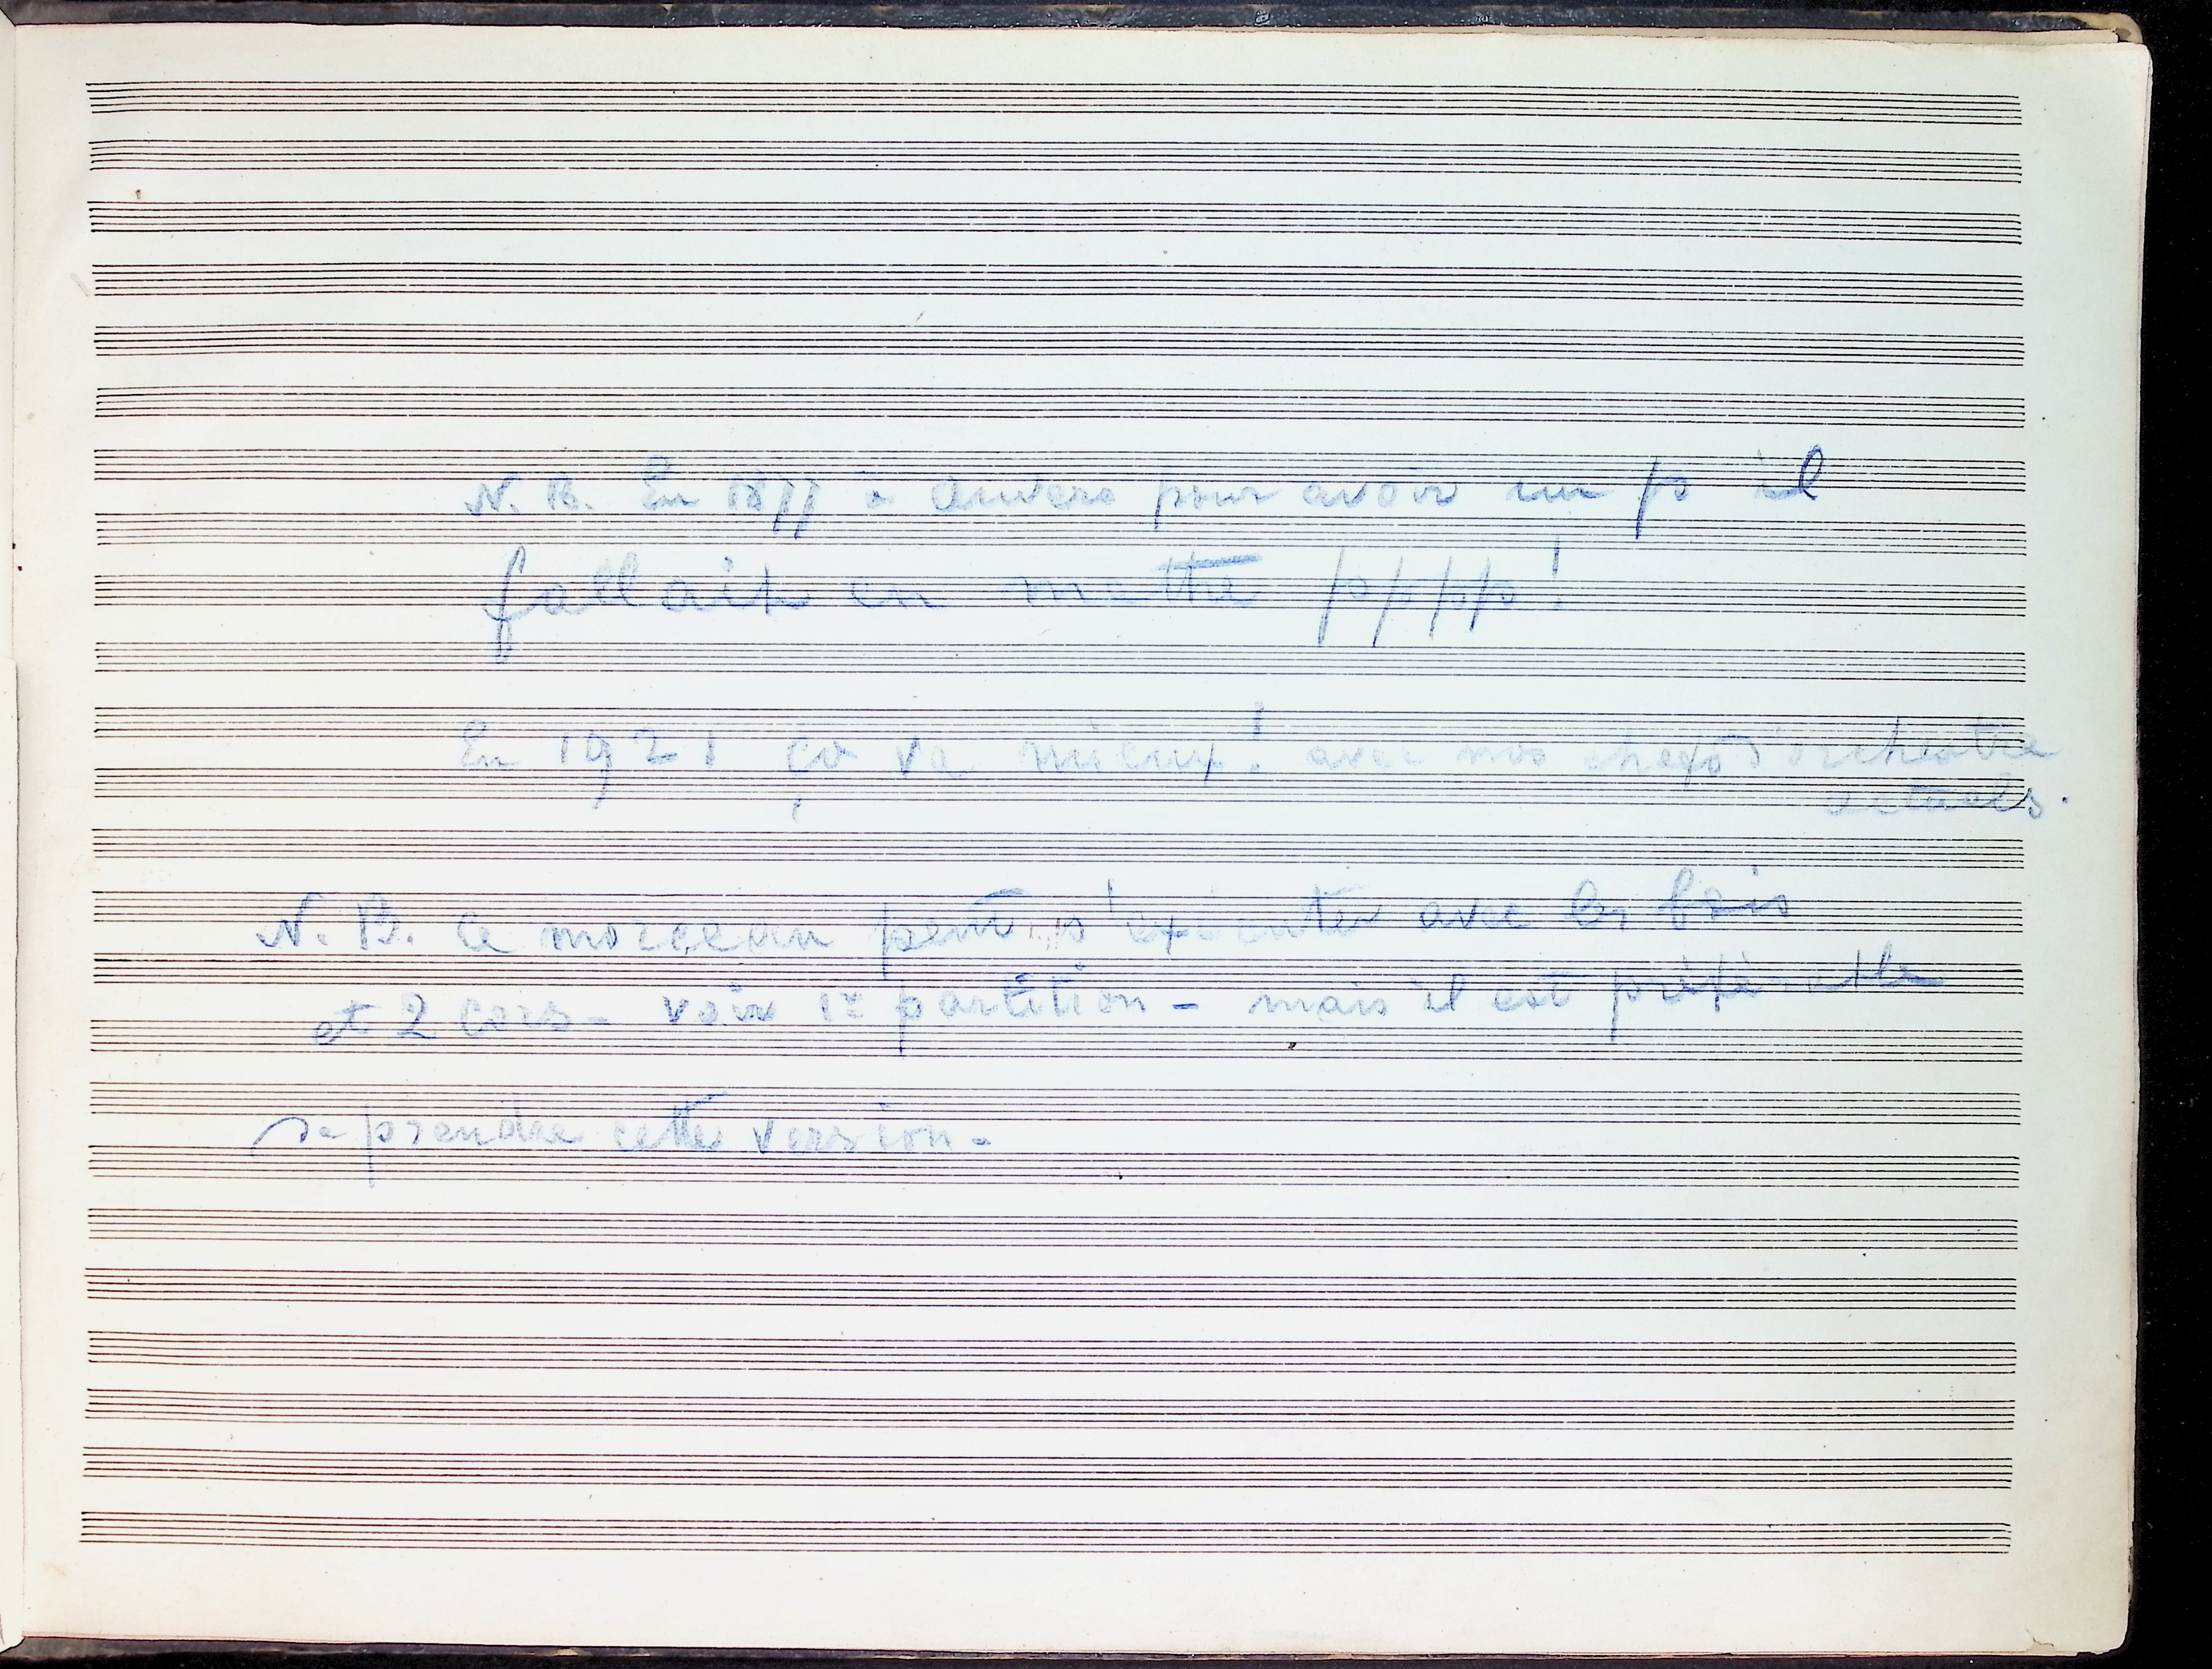 N. B. En 1877 à Anvers pour avoir un p il
fallait en mettre pppp!
En 1921 ça va mieux! avec nos chefs d'orchestre
actuels.
N. B. Ce morceau peut s'exécuter avec les bois
et 2 cors - voir 1re partition - mais il est préférable
de prendre cette version -